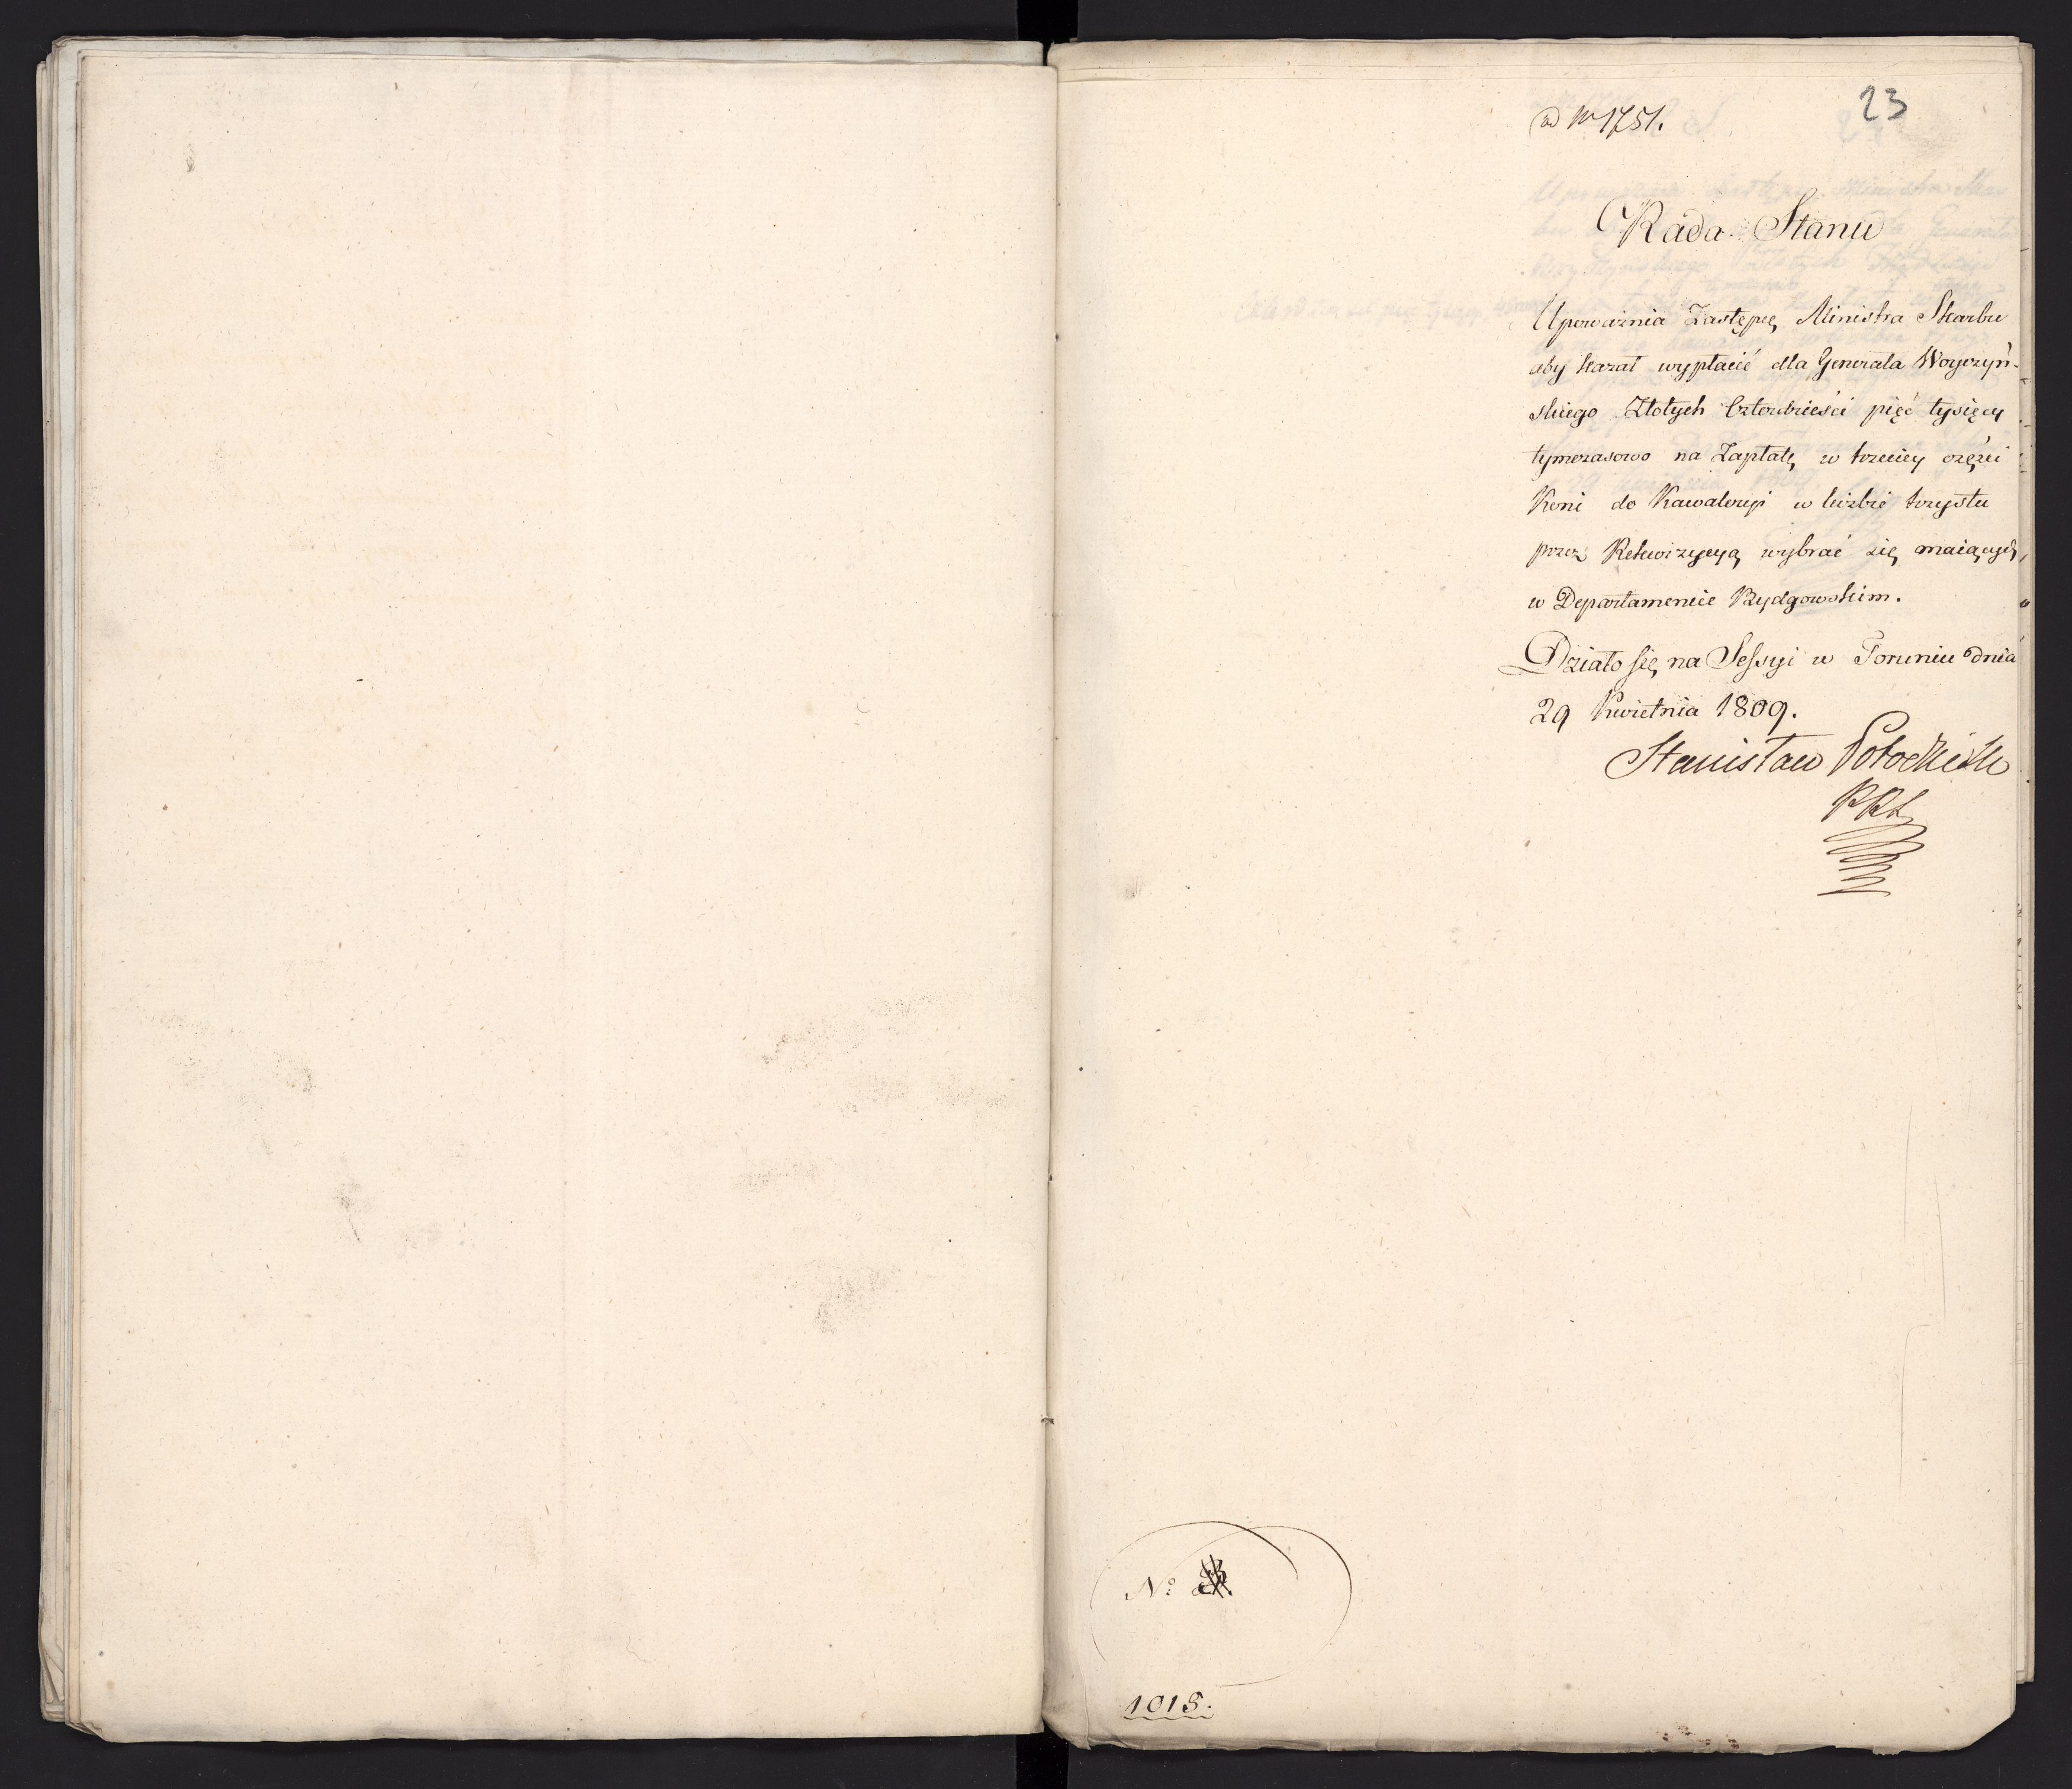 23
ad Nr 1751.
Rada Stanu
Upoważnia Zastępcę Ministra Skarbu
aby kazał wypłacić dla Generała Woyczyń-
skiego Złotych Czterdzieści pięć tysięcy
tymczasowo na Zapłatę w trzeciey części
Koni do Kawaleryi w liczbie trzystu
przez Rekwizycyą wybrać się maiących,
w Departamencie Bydgowskim.
Działo się na Sessyi w Toruniu dnia
29 Kwietnia 1809.
Stanisław Potocki
No
1018.